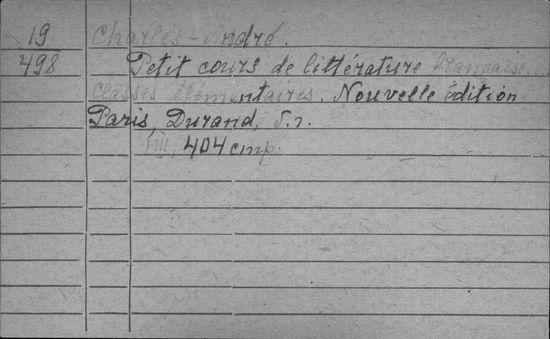 19
498
Charles-André.
Petit cours de littérature française...
classes élémentaires. Nouvelle édition
Paris, Durand, S.r.
VIII, 404 стр.